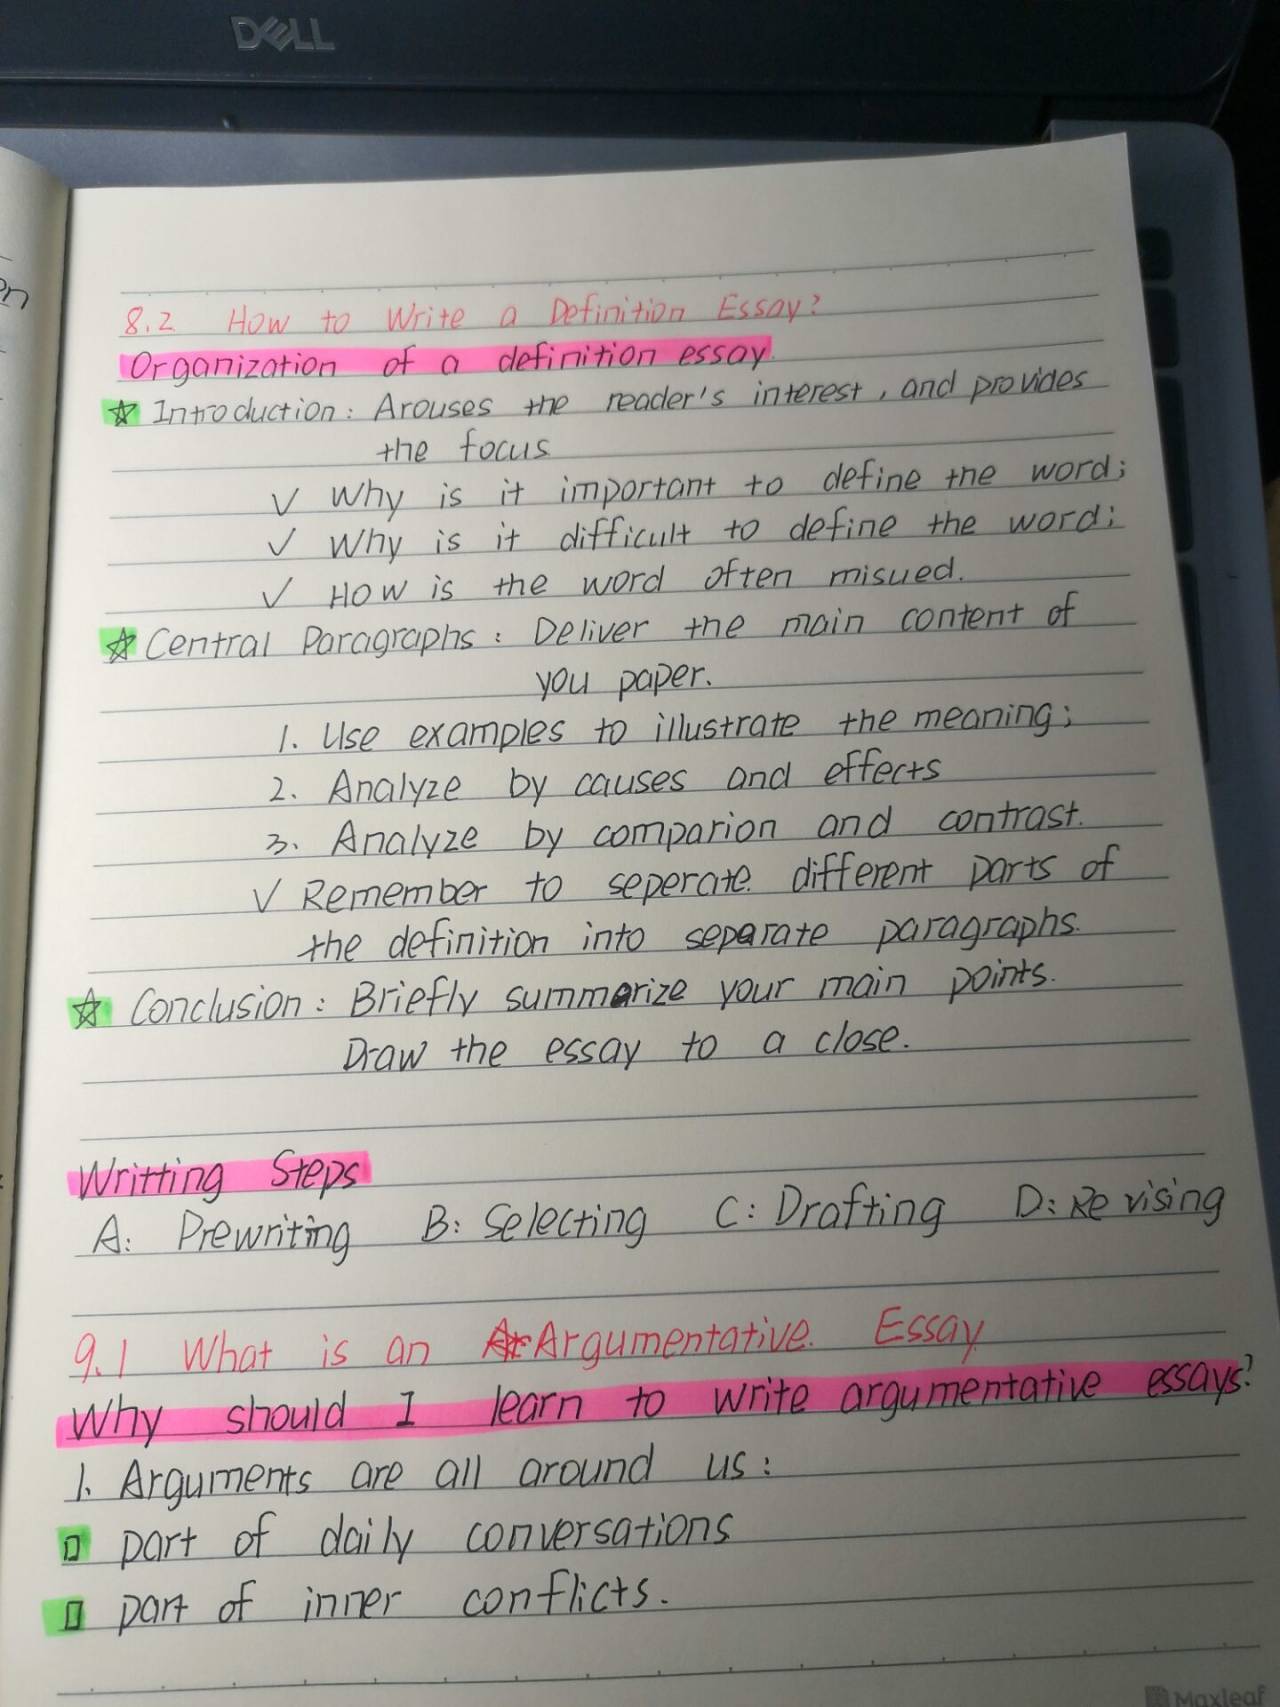 DELL
on
8.2 How to Write a Definition Essay?
Organization of a definition essay.
☆ Introduction: Arouses the reader's interest, and provides
the focus
√ Why is it important to define the word;
√ Why is it difficult to define the word;
√ How is the word often misued.
☆ Central Paragraphs: Deliver the main content of
you paper.
1. Use examples to illustrate the meaning;
2. Analyze by causes and effects
3. Analyze by comparion and contrast.
√ Remember to seperate different parts of
the definition into separate paragraphs.
☆ Conclusion: Briefly summarize your main points.
Draw the essay to a close.
Writting Steps
A: Prewriting B: Selecting C: Drafting D: Revising
9.1 What is an Argumentative Essay
Why should I learn to write argumentative essays?
1. Arguments are all around us:
▯ part of daily conversations
▯ part of inner conflicts.
Maxleaf